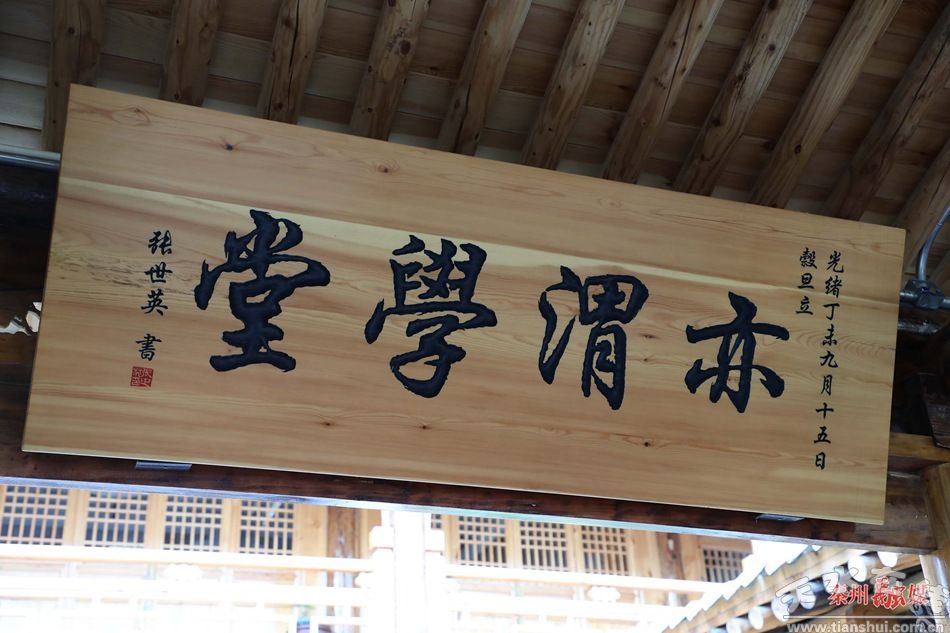 光緒丁未九月十五日
穀旦立
亦渭學堂
張世英 書
秦州融媒
www.tianshui.com.cn